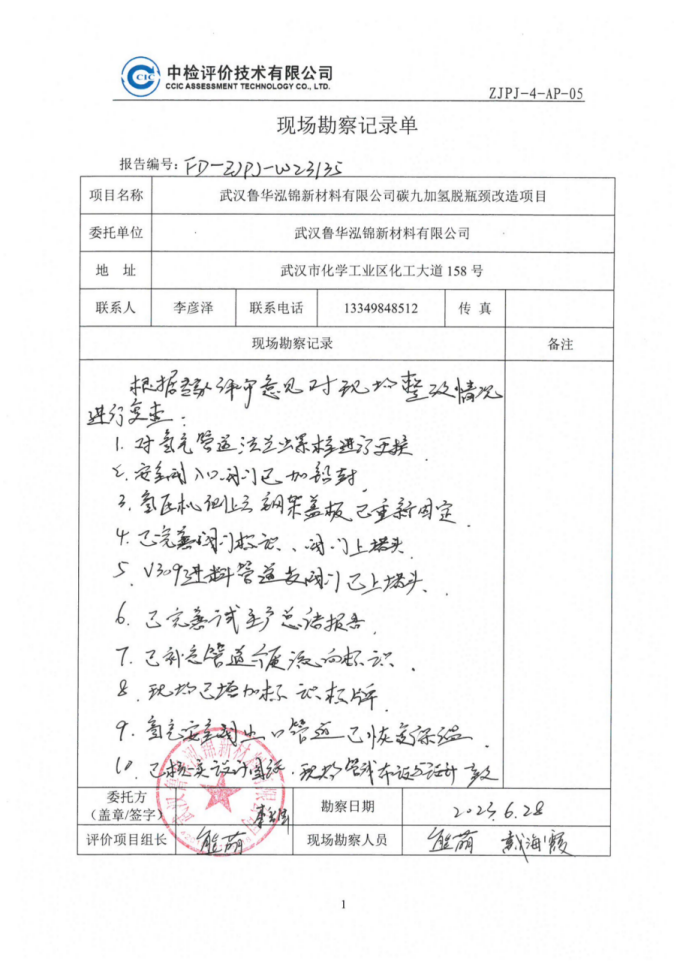 中检评价技术有限公司
CCIC ASSESSMENT TECHNOLOGY CO., LTD.
ZJPJ-4-AP-05
现场勘察记录单
报告编号：FD-ZJPJ-W23135
项目名称 武汉鲁华泓锦新材料有限公司碳九加氢脱瓶颈改造项目
委托单位 武汉鲁华泓锦新材料有限公司
地 址 武汉市化学工业区化工大道 158 号
联系人 李彦泽 联系电话 13349848512 传 真
现场勘察记录 备注
根据专家评审意见对现场整改情况
进行复查：
1. 对氢气管道法兰螺栓进行了更换
2. 安全阀入口阀门已加铅封
3. 氢压机 钢架盖板已重新固定
4. 已完善阀门标识、阀门上堵头
5. V309进料管道 阀门已上堵头、
6. 已完善试生产总结报告
7. 已补充管道介质流向标识．
8. 现场已增加标识标牌
9. 氢气安全阀出口管道已恢复保温
10. 已核实设计图纸，现场管线布设与设计一致
委托方
（盖章/签字） 勘察日期 2023.6.28
评价项目组长 熊萌 现场勘察人员 熊萌 戴海霞
1